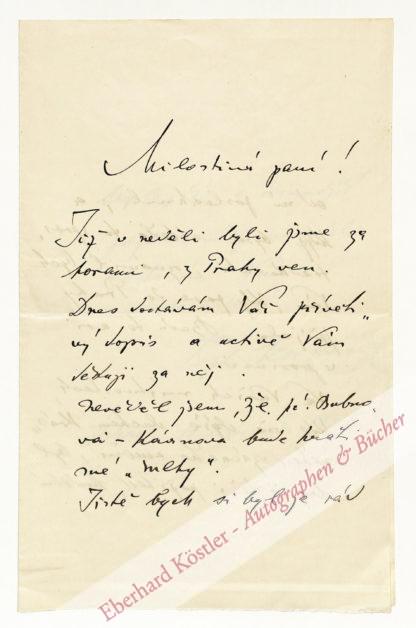 Milostivá paní!
Již v neděli byli jsme za
horami, z Prahy ven.
Dnes dostávám Váš přívěti„
vý dopis a uctivě Vám
děkuji za něj.
Nevěděl jsem, že pí. Bubno,
vá - Kávinova bude hráti
mé „Mlhy“.
Jistě bych si byl je rád
Eberhard Köstler - Autographen & Bücher